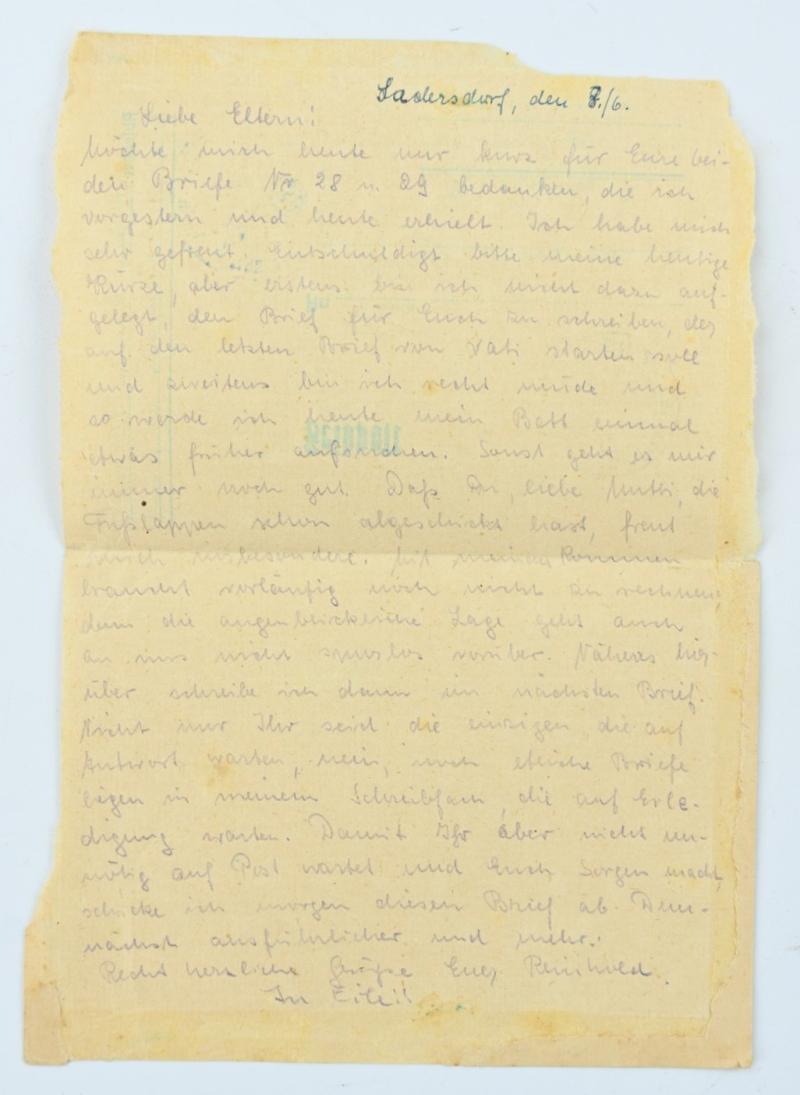 Ladersdorf, den 8./6.
Liebe Eltern!
Möchte mich heute nur kurz für Eure bei-
den Briefe Nr 28 u. 29 bedanken, die ich
vorgestern und heute erhielt. Ich habe mich
sehr gefreut. Entschuldigt bitte meine heutige
Kürze, aber erstens bin ich nicht dazu auf-
gelegt, den Brief für Euch zu schreiben, der
auf den letzten Brief von Vati starten soll
und zweitens bin ich recht müde und
so werde ich heute mein Bett einmal
etwas früher aufsuchen. Sonst geht es mir
immer noch gut. Daß Du, liebe Mutti, die
Fußlappen schon abgeschickt hast, freut
mich insbesondere. Mit meinem Kommen
braucht vorläufig noch nicht zu rechnen
denn die augenblickliche Lage geht auch
an uns nicht spurlos vorüber. Näheres hier-
über schreibe ich dann im nächsten Brief.
Nicht nur Ihr seid die einzigen, die auf
Antwort warten, nein, noch etliche Briefe
liegen in meinem Schreibfach, die auf Erle-
digung warten. Damit Ihr aber nicht un-
nötig auf Post wartet und Euch Sorgen macht,
schicke ich morgen diesen Brief ab. Dem-
nächst ausführlicher und mehr.
Recht herzliche Grüße Euer Reinhold.
In Eile!